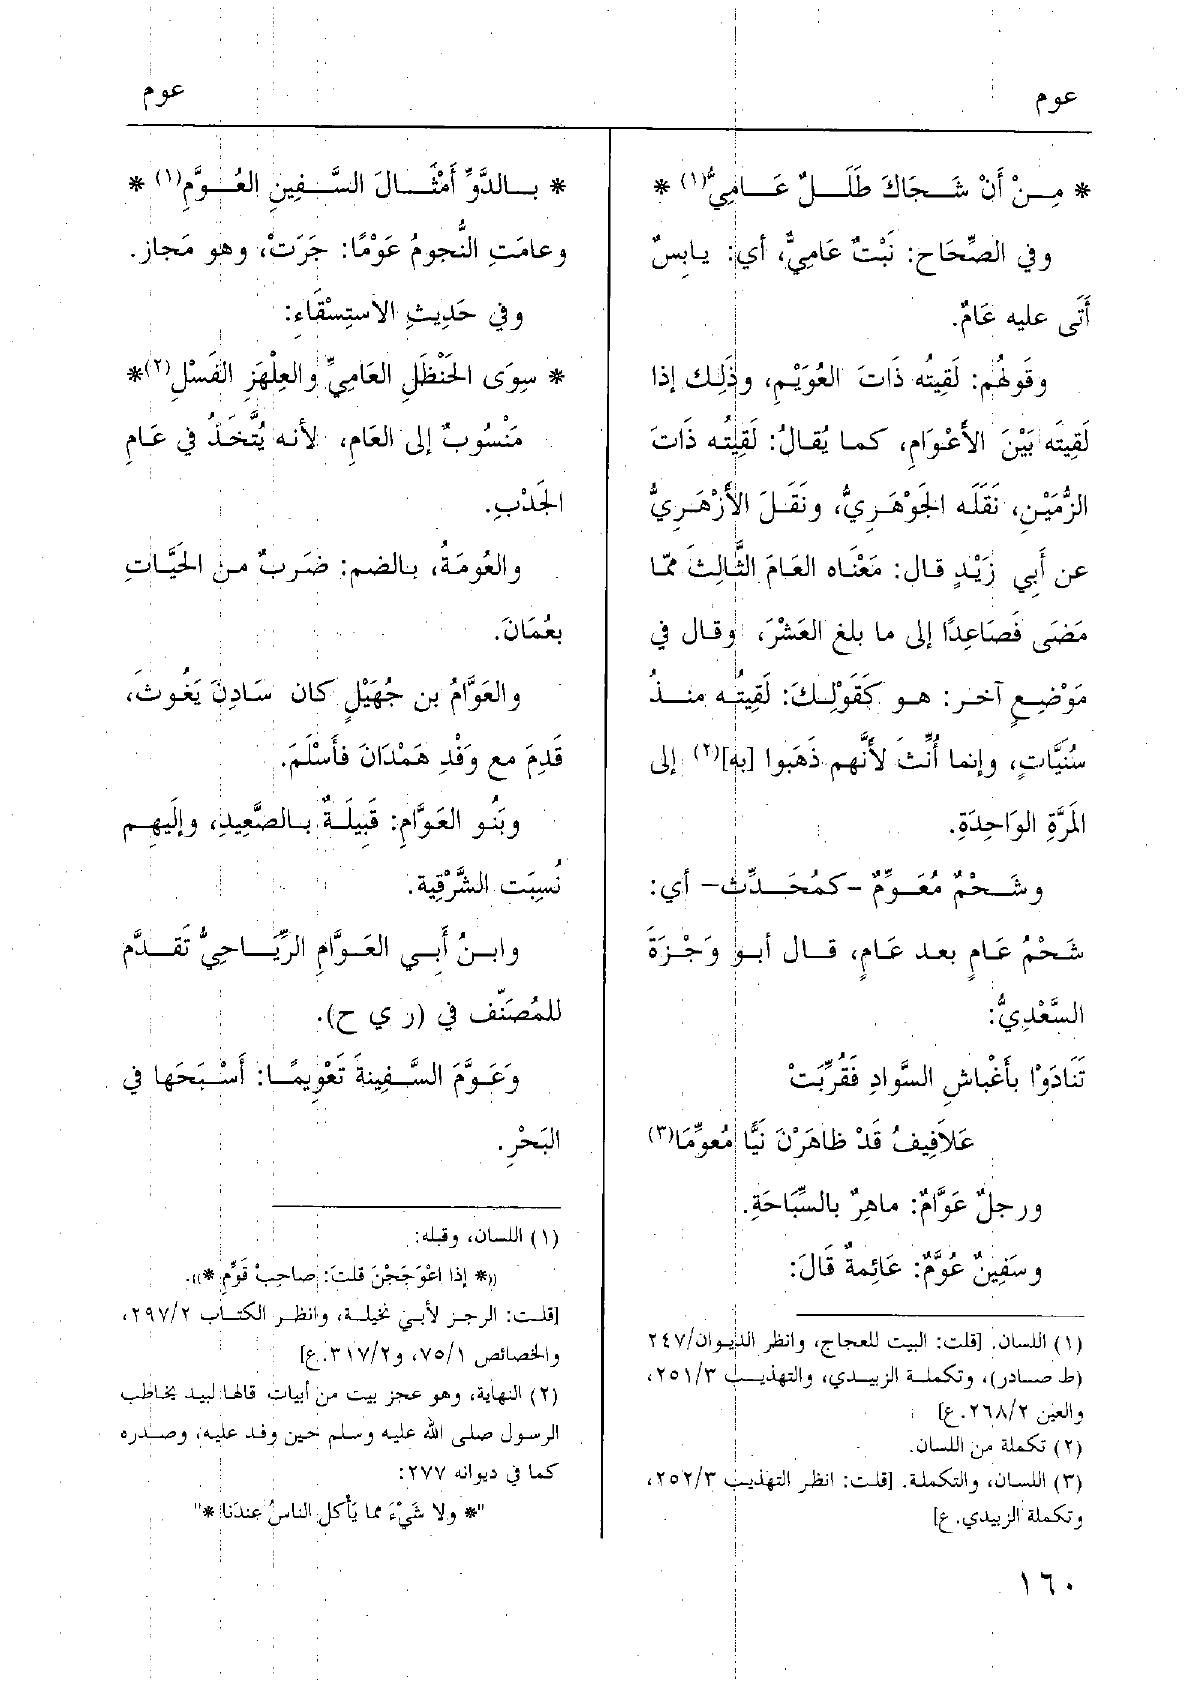 عوم
عوم
* مِنْ أَنْ شَجَاكَ طَلَلٌ عَامِيُّ(١) *
وفي الصِّحَاح: نَبْتٌ عَامِيٌّ، أي: يابِسٌ
أَتَى عليه عَامٌ.
وقولُهُم: لَقِيتُه ذَاتَ العُوَيْمِ، وذَلِك إذا
لَقِيتَه بَيْنَ الأَعْوَامِ، كما يُقالُ: لَقِيتُه ذَاتَ
الزُّمَيْنِ، نَقَلَه الجَوْهَرِيُّ، ونَقَلَ الأَزْهَرِيُّ
عن أَبي زَيْدٍ قال: مَعْنَاه العَامَ الثَّالِثَ ممّا
مَضَى فَصَاعِدًا إلى ما بلغ العَشْرَ، وقال في
مَوْضِعٍ آخر: هو كَقَوْلِكَ: لَقِيتُه منذُ
سُنَيَّاتٍ، وإنما أُنِّثَ لأَنَّهم ذَهَبوا [به](٢) إلى
المَرَّةِ الوَاحِدَةِ.
وشَحْمٌ مُعَوِّمٌ -كمُحَدِّث- أي:
شَحْمُ عَامٍ بعد عَامٍ، قال أبو وَجْزَةَ
السَّعْدِيُّ:
تَنَادَوْا بأَغْباشِ السَّوادِ فَقُرِّبَتْ
عَلاَفِيفُ قَدْ ظاهَرْنَ نَيًّا مُعوِّمَا(٣)
ورجلٌ عَوَّامٌ: ماهِرٌ بالسِّبَاحَةِ.
وسَفِينٌ عُوَّمٌ: عَائِمةٌ قَالَ:
(١) اللسان. [قلت: البيت للعجاج، وانظر الديوان/٢٤٧
(ط صادر)، وتكملة الزبيدي، والتهذيب ٢٥١/٣،
والعين ٢٦٨/٢. ع]
(٢) تكملة من اللسان.
(٣) اللسان، والتكملة. [قلت: انظر التهذيب ٢٥٢/٣،
وتكملة الزبيدي. ع]
* بالدَّوِّ أَمْثَالَ السَّفِينِ العُوَّمِ(١) *
وعامَتِ النُّجومُ عَوْمًا: جَرَتْ، وهو مَجاز.
وفي حَدِيثِ الاستِسْقَاءِ:
* سِوَى الحَنْظَلِ العَامِيِّ والعِلْهَزِ الفَسْلِ(٢)*
مَنْسُوبٌ إلى العَامِ، لأنه يُتَّخَذُ في عَامِ
الجَدْبِ.
والعُومَةُ، بالضم: ضَربٌ من الحَيَّاتِ
بعُمَانَ.
والعَوَّامُ بن جُهَيْلٍ كان سَادِنَ يَغُوثَ،
قَدِمَ مع وَفْدِ هَمْدَانَ فأَسْلَمَ.
وبَنُو العَوَّامِ: قَبِيلَةٌ بالصَّعِيدِ، وإلَيهِم
نُسِبَت الشَّرْقِية.
وابنُ أَبِي العَوَّامِ الرِّيَاحِيُّ تَقَدَّم
للمُصَنّف في (ر ي ح).
وَعَوَّمَ السَّفِينةَ تَعْوِيمًا: أَسْبَحَها في
البَحْرِ.
(١) اللسان، وقبله:
((* إذا اعْوَجَجْنَ قلتَ: صاحِبْ قَوِّمِ *)).
[قلت: الرجز لأبي نخيلة، وانظر الكتاب ٢٩٧/٢،
والخصائص ٧٥/١، و٣١٧/٢. ع]
(٢) النهاية، وهو عجز بيت من أبيات قالها لبيد يخاطب
الرسول صلى الله عليه وسلم حين وفد عليه، وصدره
كما في ديوانه ٢٧٧:
"* ولا شَيْءَ مما يَأْكل الناسُ عِندَنا *"
١٦٠